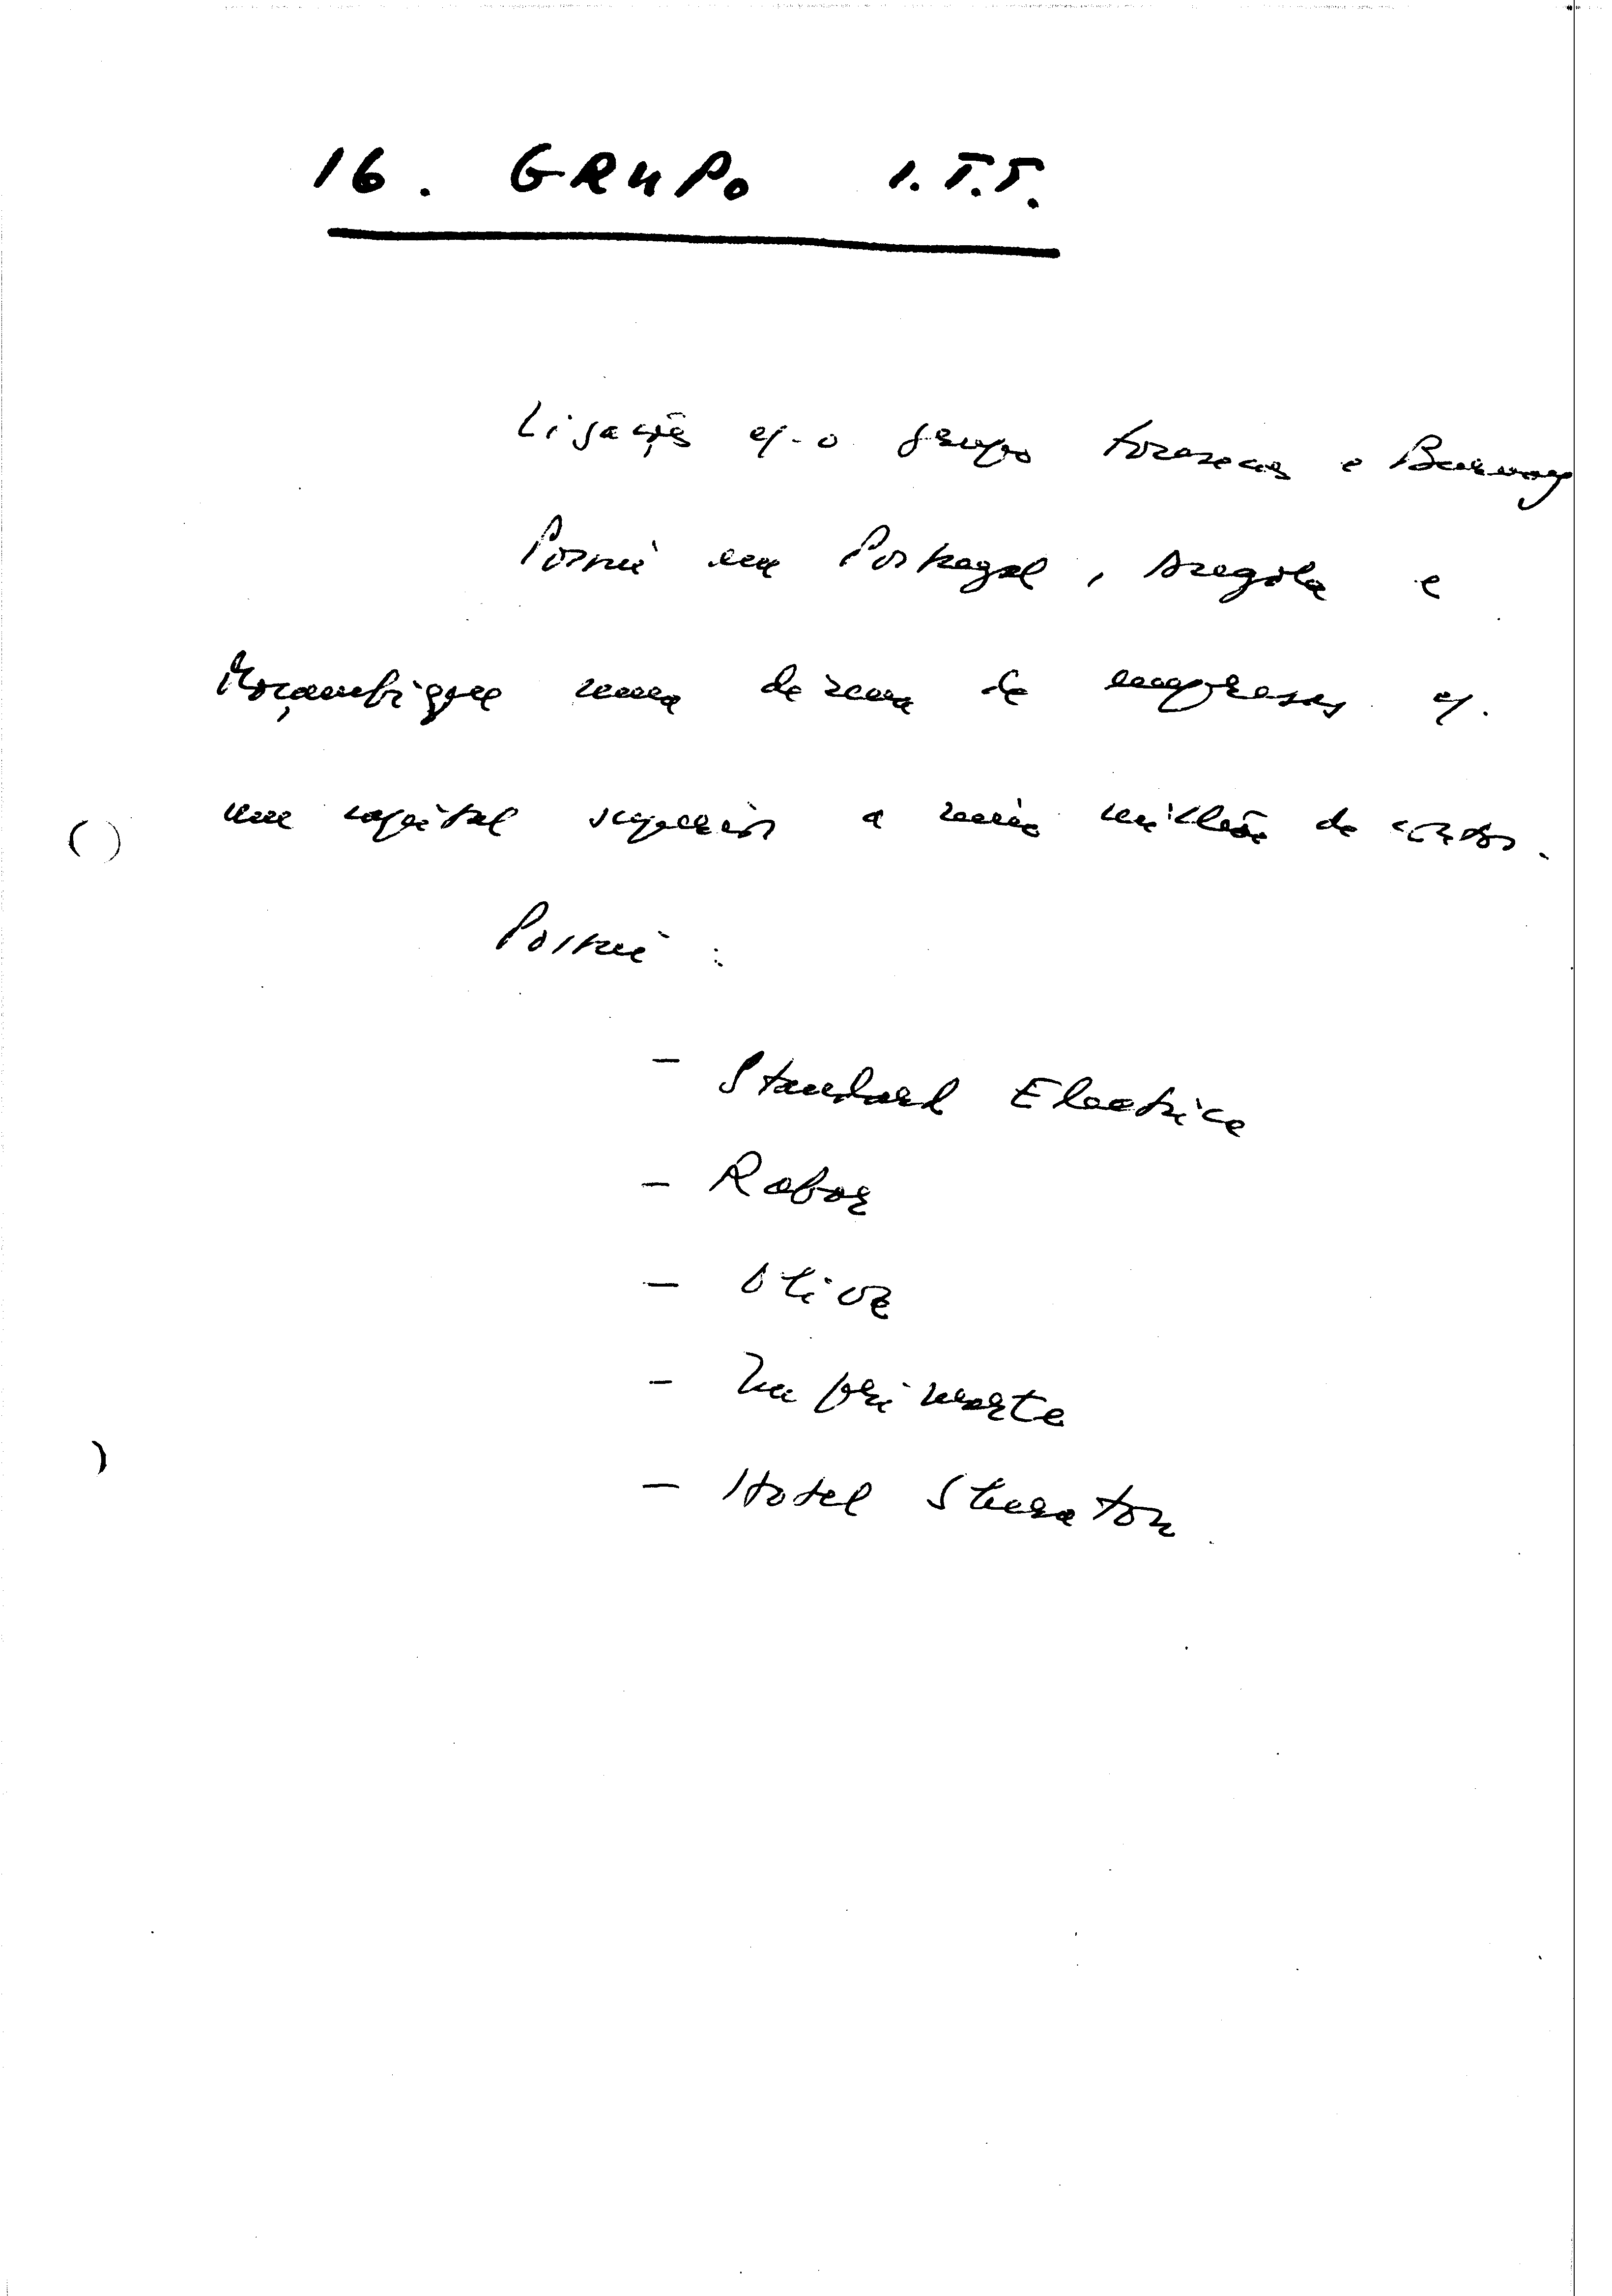 16. GRUPO I.T.T.
Ligações c/. o grupo Fonsecas e Burnay
Possui em Portugal, Angola e
Moçambique uma dezena de empresas c/.
um capital superior a meio milhão de contos.
Possui :
- Standard Electrica
- Rabor
- Oliva
- Imprimarte
- Hotel Sheraton